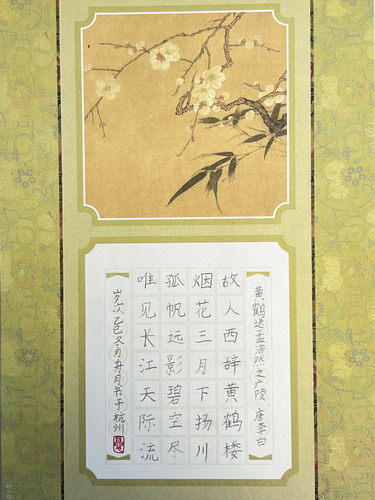 黄鹤送孟浩然之广陵 唐李白
故人西辞黄鹤楼
烟花三月下扬川
孤帆远影碧空尽
唯见长江天际流
岁次乙巳冬月舟月书于杭州